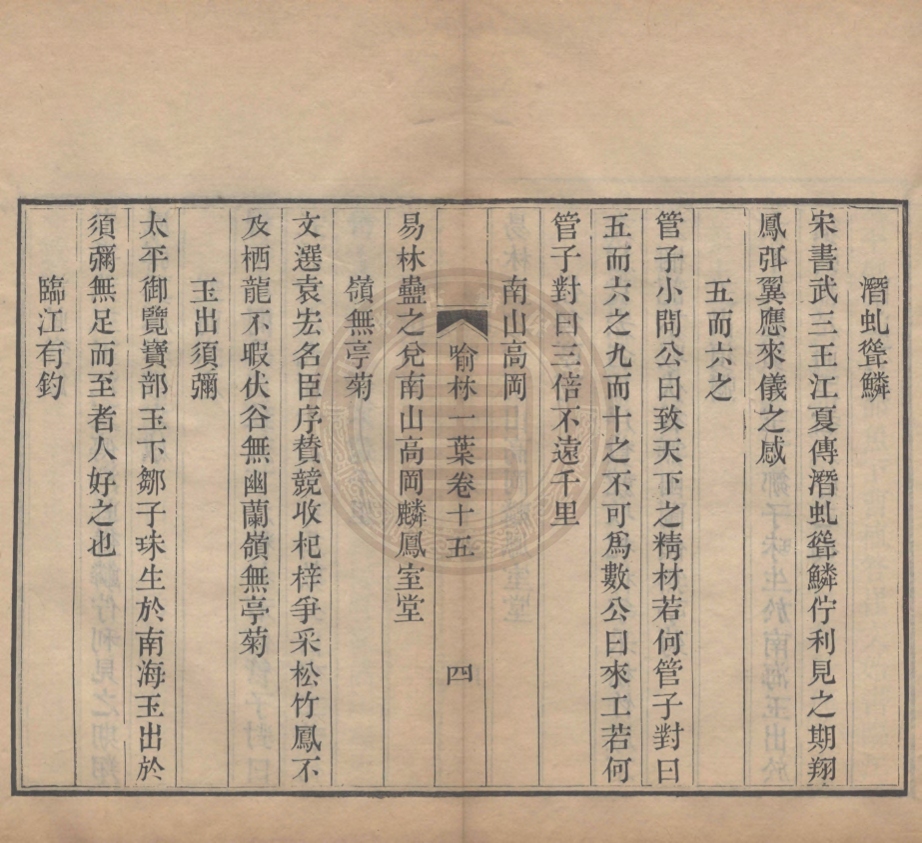 潛虬聳鱗
宋書武三王江夏傳潛虬聳鱗佇利見之期翔
鳳弭翼應來儀之感
五而六之
管子小問公曰致天下之精材若何管子對曰
五而六之九而十之不可爲數公曰來工若何
管子對曰三倍不遠千里
南山高岡
喻林一葉卷十五
四
易林蠱之兌南山高岡麟鳳室堂
嶺無亭菊
文選袁宏名臣序贊競收杞梓爭采松竹鳳不
及栖龍不暇伏谷無幽蘭嶺無亭菊
玉出須彌
太平御覽寶部玉下鄒子珠生於南海玉出於
須彌無足而至者人好之也
臨江有釣